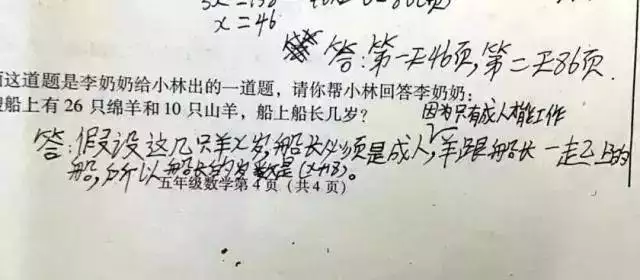 x=46
答:第一天46页,第二天86页.
这道题是李奶奶给小林出的一道题，请你帮小林回答李奶奶:
船上有26只绵羊和10只山羊，船上船长几岁?
因为只有成人才能工作
答:假设这几只羊x岁,船长必须是成人,羊跟船长一起上的
船,所以船长的岁数是(x+18)。
五年级数学第4页(共4页)